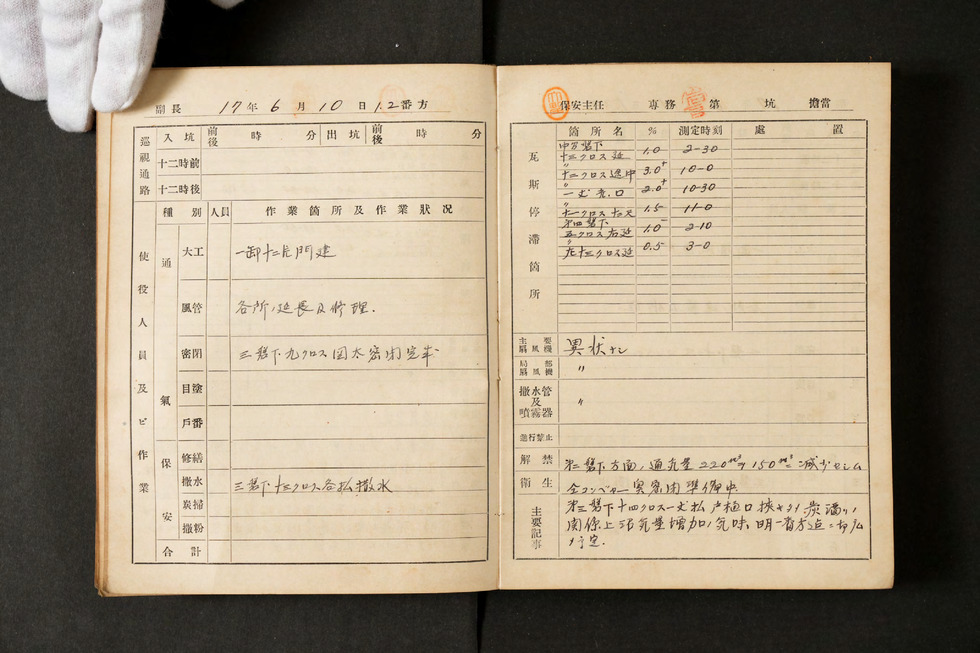 副長 17年 6月 10日 1.2番方
巡視通路
入坑 前後 時 分 出坑 前後 時 分
十二時前
十二時後
使役人員及ビ作業
種別 人員 作業箇所及作業狀況
通氣
大工 一卸十二片門建
風管 各所ノ延長及修理.
密閉 三盤下九クロス 密閉完半
目塗
戶番
保安
修繕
撒水 三盤下十三クロス各払撒水
炭掃
撒粉
合計
保安主任 専務 第 坑 擔當
瓦斯停滞箇所
箇所名 % 測定時刻 處置
十三クロス延 1.0 2-30
〃 十三クロス 3.0+ 10-0
〃 2.0+ 10-30
〃 1.5 11-0
第四盤下 五クロス右延 1.0- 2-10
〃 左十三クロス延 0.5 3-0
主要扇風機 異状ナシ
局部扇風機 〃
撒水管及噴霧器 〃
進行禁止
解禁 第二盤下方面ノ通気量220m³ヲ150m³ニ減少セシム
衛生 全コンベヤー 密閉準備中
主要記事 第三盤下十四クロス一丈払
関係上 瓦斯量増加ノ気味、明一番方迄ニ
予定.